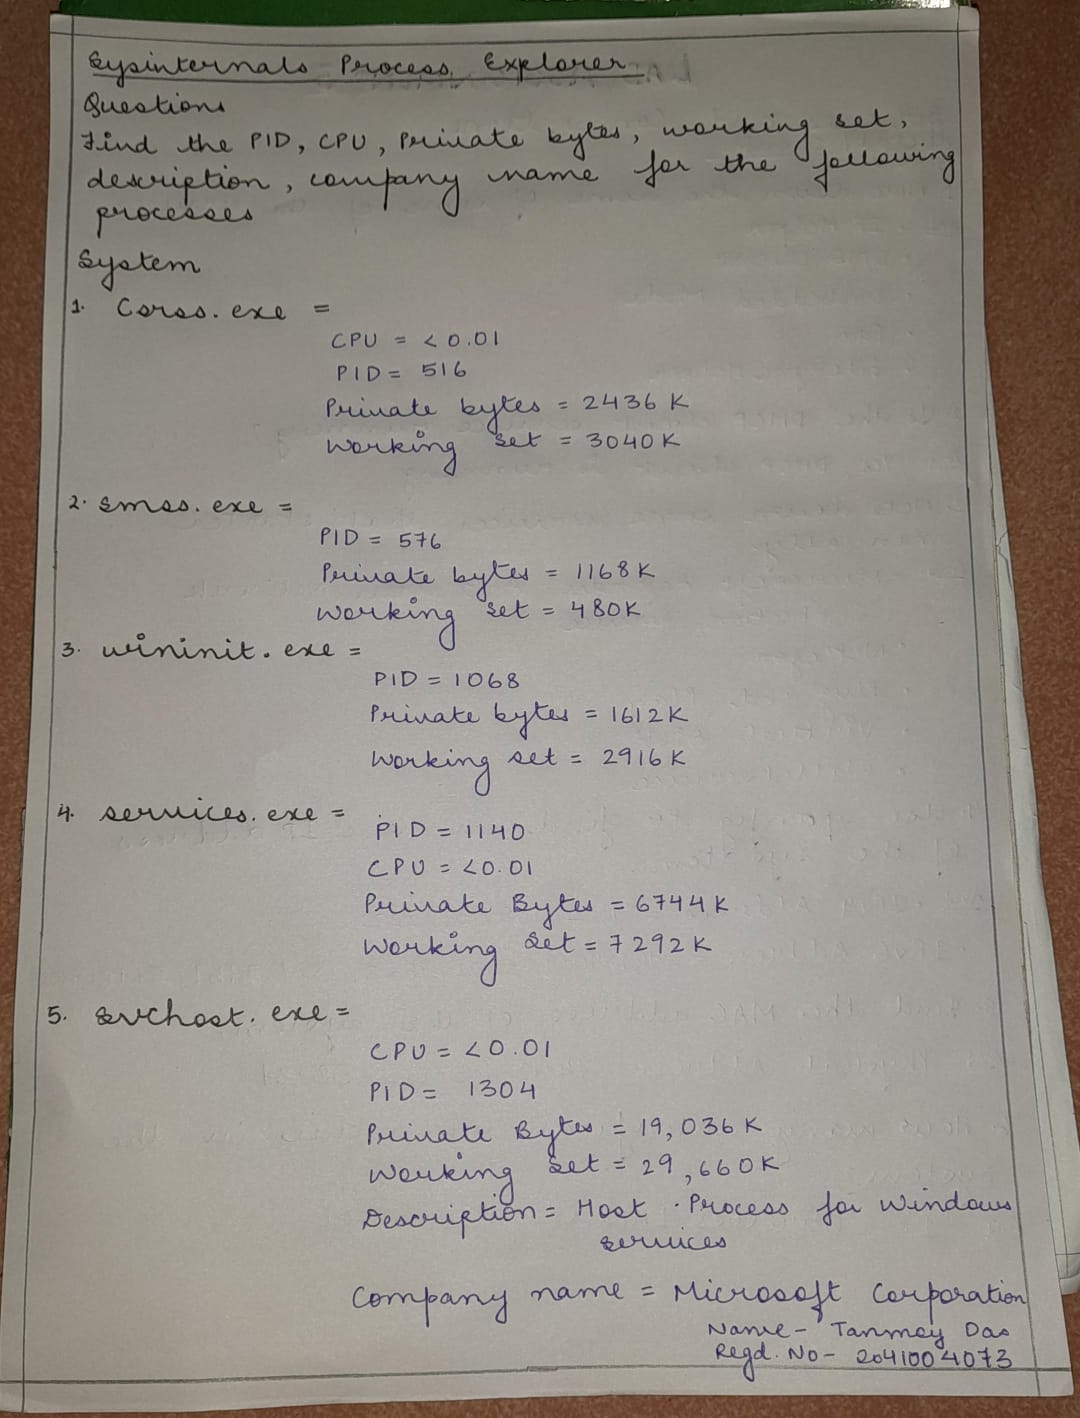 Sysinternals Process Explorer
Questions
Find the PID, CPU, Private bytes, working set,
description, company name for the following
processes
System
1. Csrss.exe =
CPU = <0.01
PID = 516
Private bytes = 2436 K
Working set = 3040K
2. smss.exe =
PID = 576
Private bytes = 1168K
Working set = 480K
3. wininit.exe =
PID = 1068
Private bytes = 1612K
Working set = 2916K
4. services.exe =
PID = 1140
CPU = <0.01
Private Bytes = 6744K
Working Set = 7292K
5. svchost.exe =
CPU = <0.01
PID = 1304
Private Bytes = 19,036K
Working Set = 29,660K
Description = Host Process for Windows
services
Company name = Microsoft Corporation
Name - Tanmay Das
Regd. No - 2041004073